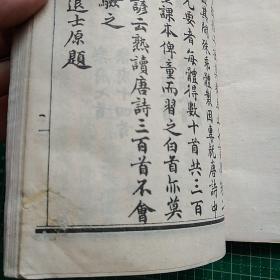 其間殊乖體製因專就唐詩中
尤要者每體得數十首共三百
課本俾童而習之白首亦莫
諺云熟讀唐詩三百首不會
驗之
退士原題
二